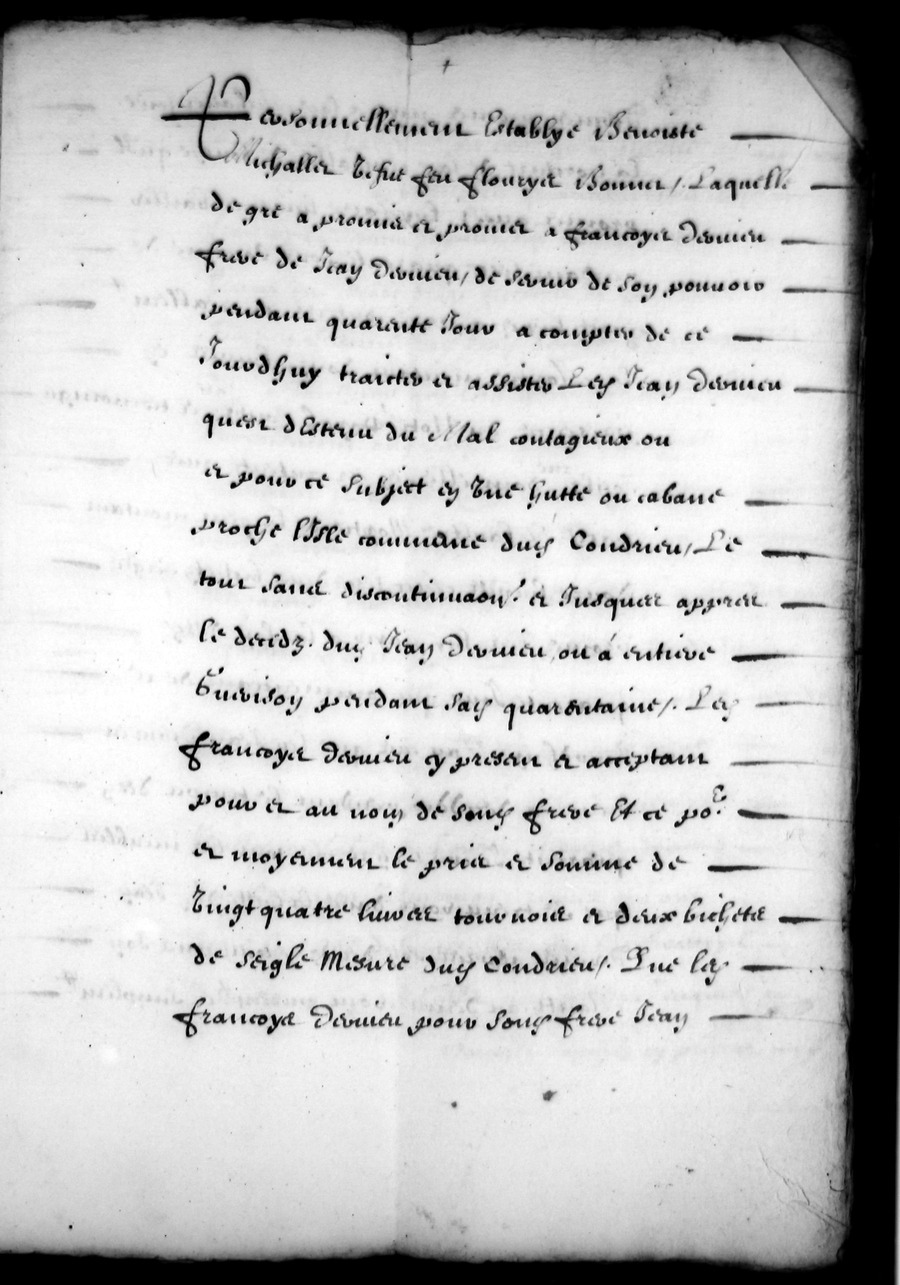 Personnellement Establye Benoiste
Michallet vefue feu flourys Bonnet, Laquelle
de gre a promis et promet a francoys Dervieu
frere de Jean Dervieu, de servir de son pouvoir
pendant quarente Jour a compter de ce
Jourdhuy traicter et assister Led Jean Dervieu
quest dEstenu du Mal contagieux ou
et pour ce subject en vne hutte ou cabane
proche lIsle commune dud Condrieu, Le
tout sans discontinuaon. et Jusques appres
le decedz. dud Jean Dervieu, ou a entiere
Guerison pendant sad quarantaine, Led
francoys Dervieu cy present et acceptant
pour et au nom de sond frere Et ce por
et moyennent le pris et somme de
vingt quatre livres tournois et deux bichets
de seigle Mesure dud Condrieu. Que led
francoys Dervieu pour sond frere Jean